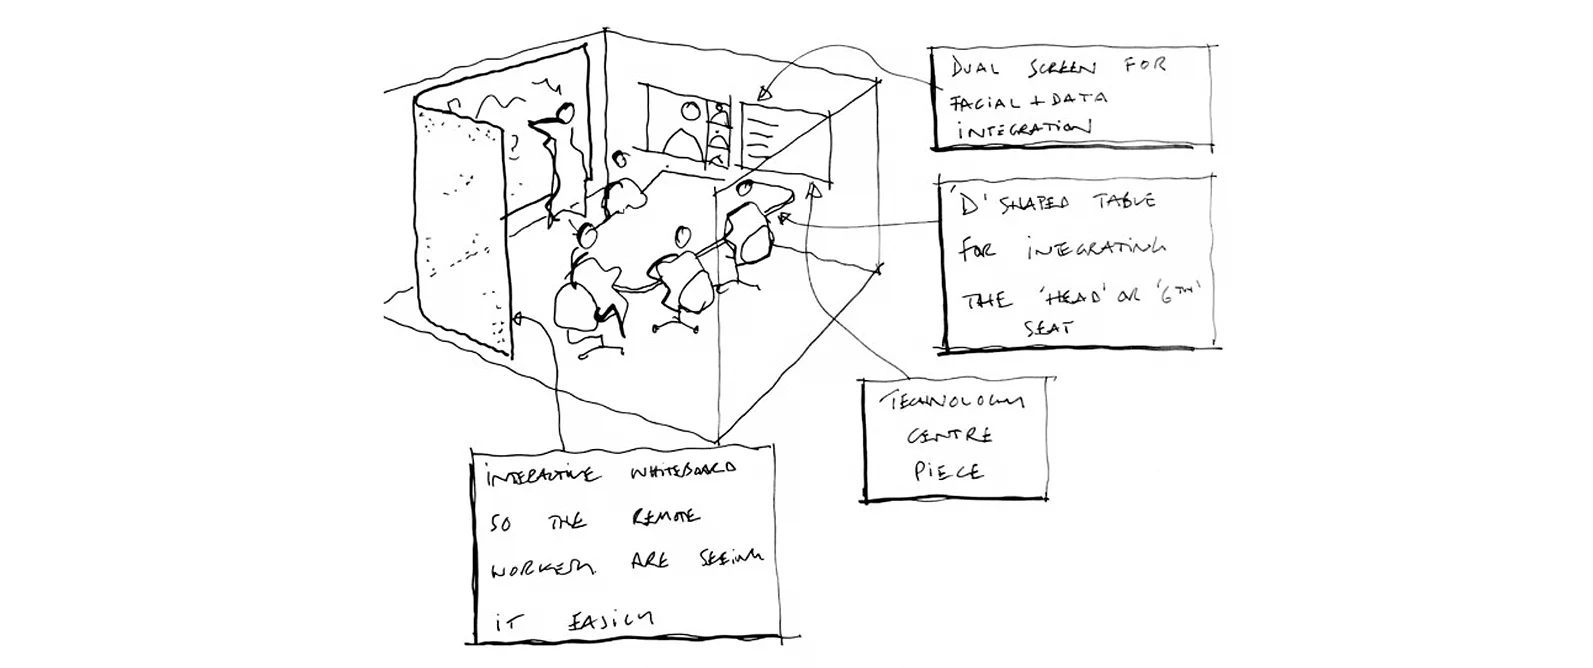 DUAL SCREEN FOR
FACIAL + DATA
INTEGRATION
'D' SHAPED TABLE
FOR INTEGRATING
THE 'HEAD' OR '6TH'
SEAT
TECHNOLOGY
CENTRE
PIECE
INTERACTIVE WHITEBOARD
SO THE REMOTE
WORKERS ARE SEEING
IT EASILY